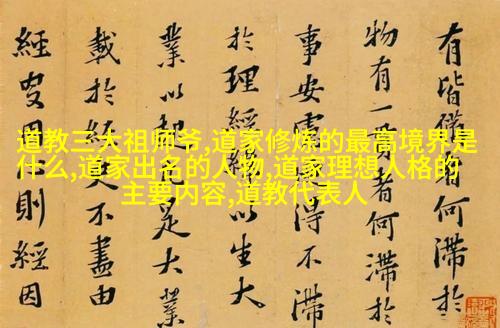 道教三大祖师爷,道家修炼的最高境界是
什么,道家出名的人物,道家理想人格的
主要内容,道教代表人
有皆有何滞於
物有一者何滞於
事安得不滞
於理經以生大
業以是大業
載於不盡由
經因則經因